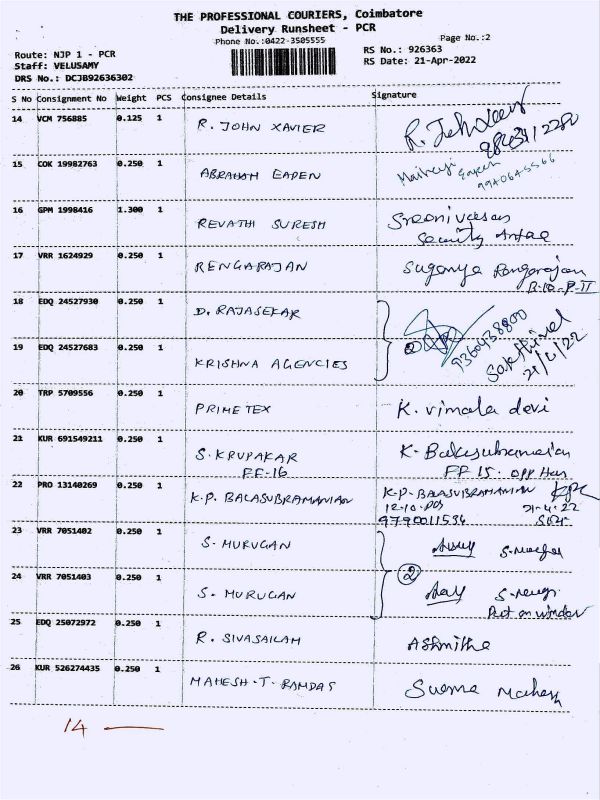 THE PROFESSIONAL COURIERS, Coimbatore
Delivery Runsheet - PCR
Phone No.:0422-3505555
Page No.:2
Route: NJP 1 - PCR
RS No.: 926363
Staff: VELUSAMY
RS Date: 21-Apr-2022
DRS No.: DCJB92636302
S No Consignment No Weight PCS Consignee Details Signature
14 VCM 756885 0.125 1 R. JOHN XAVIER R. John
15 COK 19982763 0.250 1 ABRAHAM EAPEN
9940645566
16 GPM 1998416 1.300 1 REVATHI SURESH Sreenivasan
Security
17 VRR 1624929 0.250 1 RENGARAJAN Suganya Rangarajan
18 EDQ 24527930 0.250 1 D. RAJASEKAR
9360438800
19 EDQ 24527683 0.250 1 KRISHNA AGENCIES Sakthivel
21/4/22
20 TRP 5709556 0.250 1 PRIMETEX K. vimala devi
21 KUR 691549211 0.250 1 S. KRUPAKAR K. Balasubramanian
FF-16 FF 15. opp
22 PRO 13140269 0.250 1 K.P. BALASUBRAMANIAN K.P. BALASUBRAMANIAN
21-4-22
9790011534
23 VRR 7051402 0.250 1 S. MURUGAN
2
24 VRR 7051403 0.250 1 S. MURUGAN
Put on window
25 EDQ 25072972 0.250 1 R. SIVASAILAM Ashmitha
26 KUR 526274435 0.250 1 MAHESH.T.RAMDAS Suema Mahesh
14